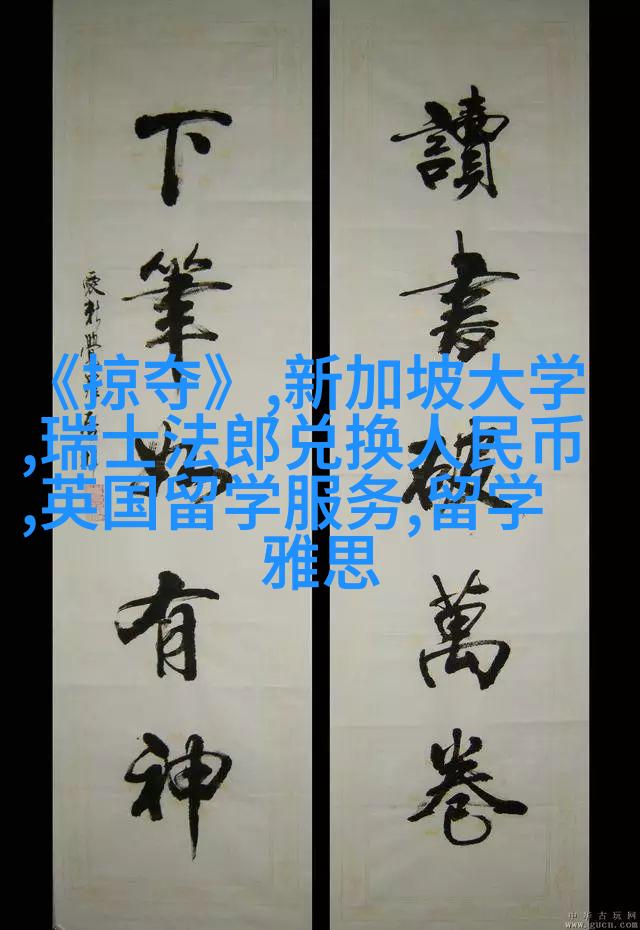 讀書破萬卷
下筆如有神
《掠夺》,新加坡大学
,瑞士法郎兑换人民币
,英国留学服务,留学
雅思
中华古玩网
www.gucn.com